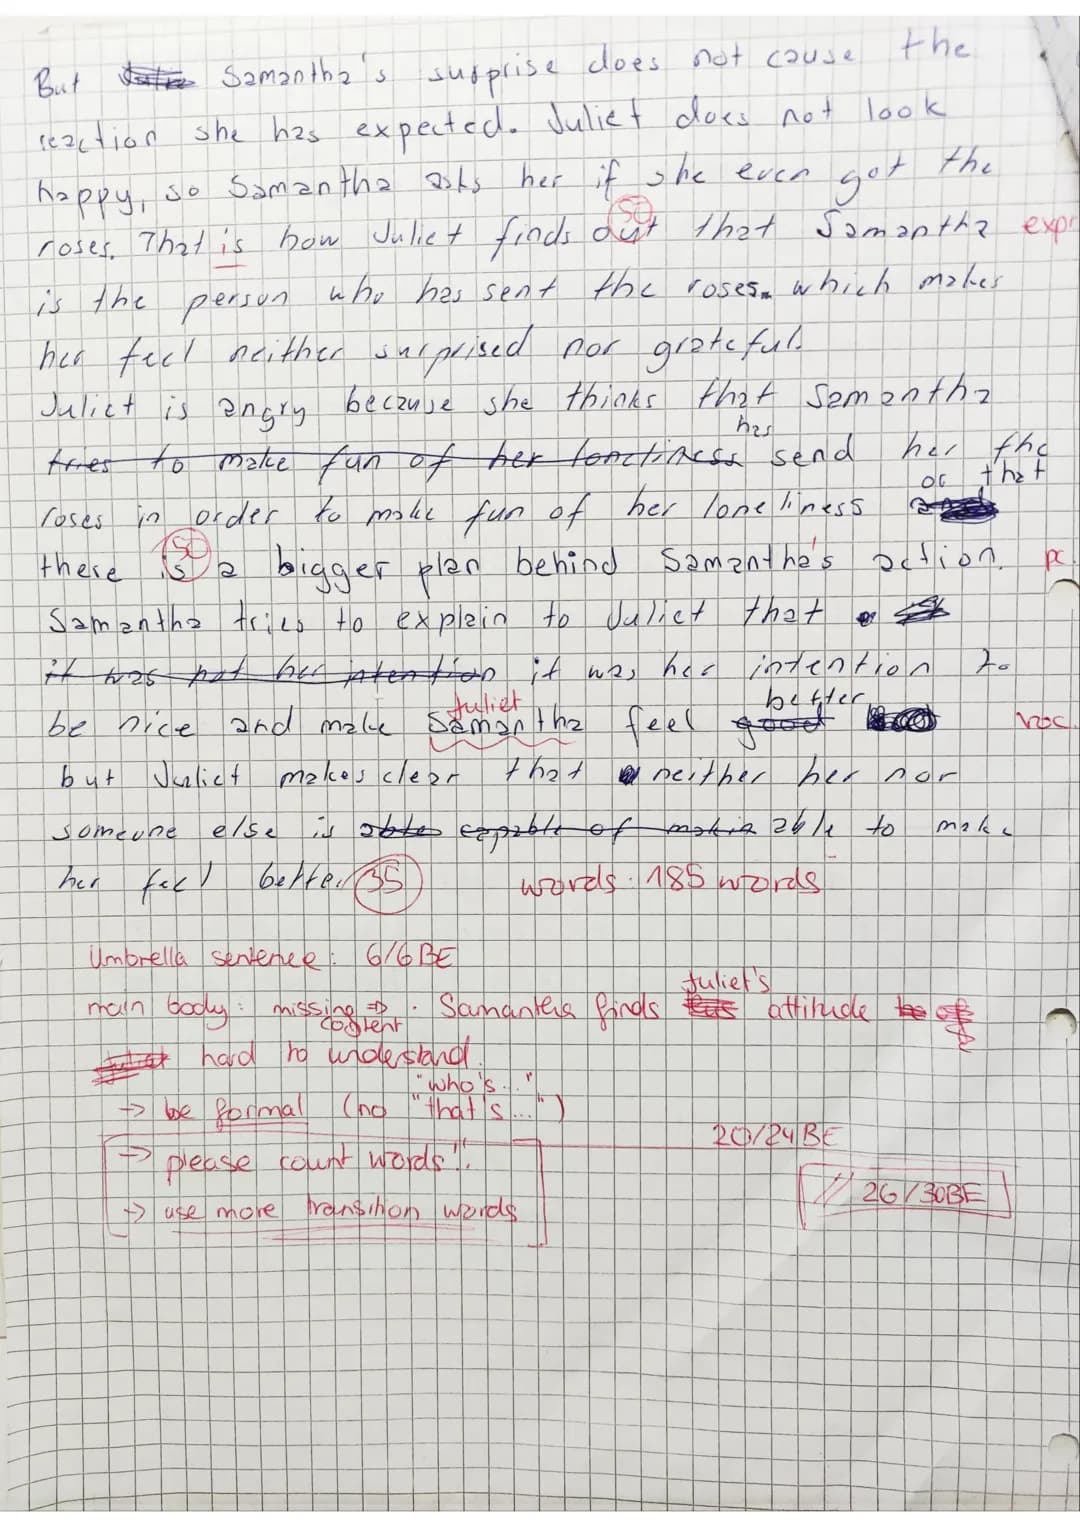 But Samantha's surprise does not cause the
reaction she has expected. Juliet does not look
happy, so Samantha asks her if she even got the
50
roses. That is how Juliet finds out that Samantha expr
is the person who has sent the roses which makes
her feel neither surprised nor grateful.
Juliet is angry because she thinks that Samantha
has
tries to make fun of her loneliness send her the
or that
roses in order to make fun of her loneliness
50
there is a bigger plan behind Samantha's action. pc
Samantha tries to explain to Juliet that
it was not her intention it was her intention to
Juliet better
be nice and make Samantha feel good voc.
but Juliet makes clear that neither her nor
someone else is able capable of makin able to make
her feel better. 35 words: 185 words
Umbrella sentence: 6/6 BE
Juliet's
main body: missing ⇒ · Samantha finds attitude
content
hard to understand.
"who's..."
→ be formal (no "that's...")
20/24 BE
→ please count words!!
// 26/30BE
→ use more transition words